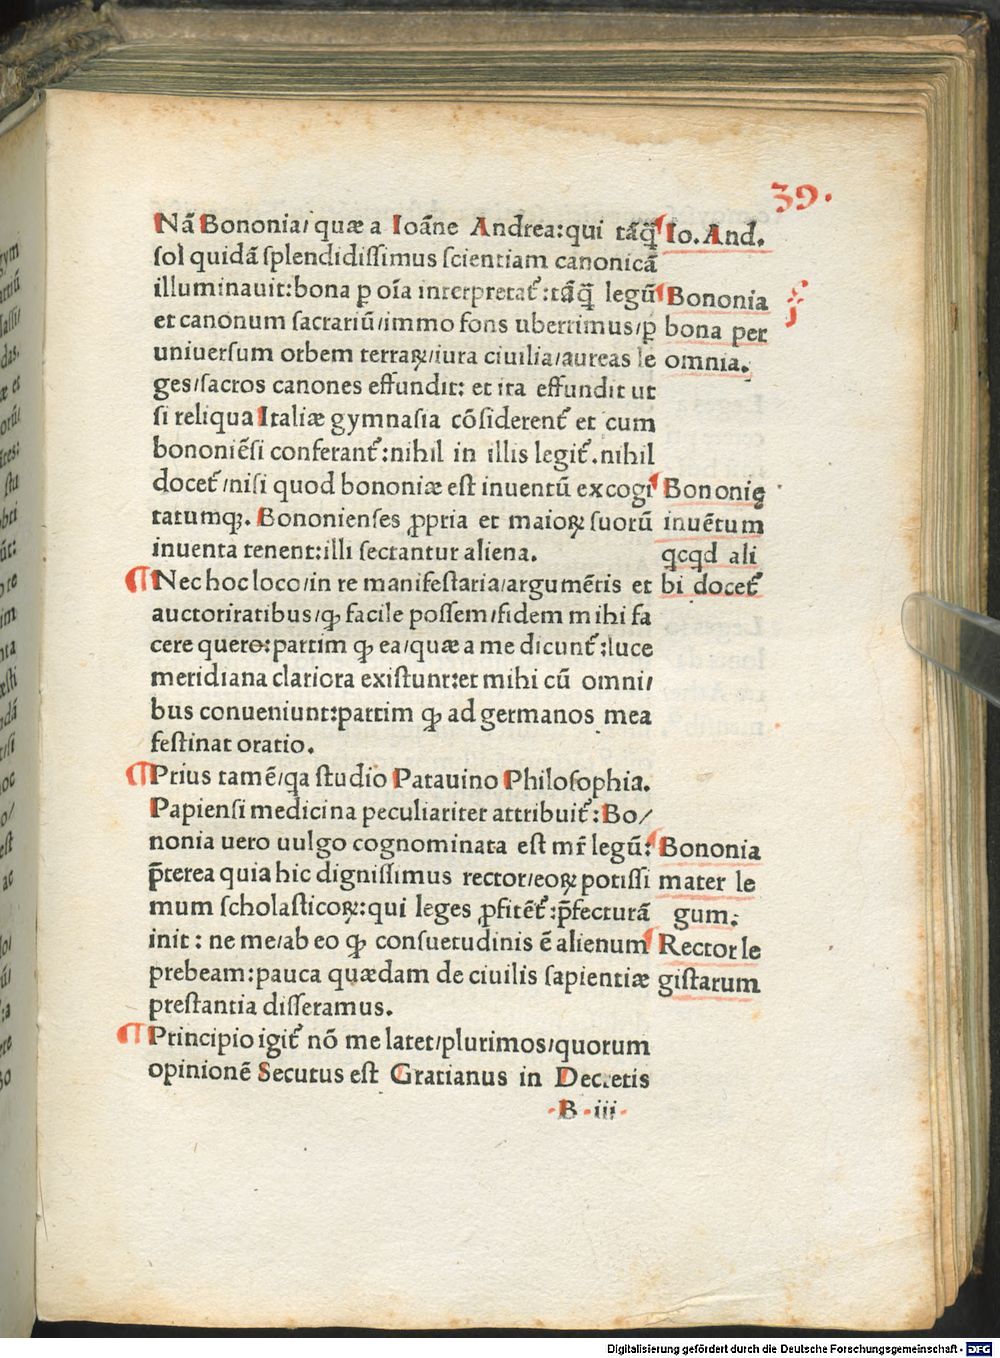 39.
Nã Bononia/ quæ a Ioãne Andrea: qui tãq̃
sol quidã splendidissimus scientiam canonicã
illuminauit: bona ꝑ oĩa interpretat᷑: tãq̃ legũ
et canonum sacrariũ/ immo fons uberrimus/ ꝑ
uniuersum orbem terraꝝ/ iura ciuilia/ aureas le
ges/ sacros canones effundit: et ita effundit ut
si reliqua Italiæ gymnasia cõsiderent᷑ et cum
bononiẽsi conferant᷑: nihil in illis legit᷑. nihil
docet᷑/ nisi quod bononiæ est inuentũ excogi
tatumqꝫ. Bononienses ꝓpria et maioꝝ suorũ
inuenta tenent: illi sectantur aliena.
¶ Nec hoc loco/ in re manifestaria/ argumẽtis et
auctoritatibus/ ꝙ facile possem/ fidem mihi fa
cere quero: partim ꝙ ea/ quæ a me dicunt᷑: luce
meridiana clariora existunt: et mihi cũ omni/
bus conueniunt: partim ꝙ ad germanos mea
festinat oratio.
¶ Prius tamẽ/ qa studio Patauino Philosophia.
Papiensi medicina peculiariter attribuit᷑: Bo/
nonia uero uulgo cognominata est mr̃ legũ:
p̃terea quia hic dignissimus rector/ eoꝝ potissi
mum scholasticoꝝ: qui leges ꝓfitẽt᷑: p̃fecturã
init: ne me/ ab eo ꝙ consuetudinis ẽ alienum
prebeam: pauca quædam de ciuilis sapientiæ
prestantia disseramus.
¶ Principio igit᷑ nõ me latet/ plurimos/ quorum
opinionẽ Secutus est Gratianus in Decretis
B iii
Io. And.
Bononia
bona per
omnia.
Bononię
inuẽtum
qcqd ali
bi docet᷑
Bononia
mater le
gum.
Rector le
gistarum
Digitalisierung gefördert durch die Deutsche Forschungsgemeinschaft - DFG